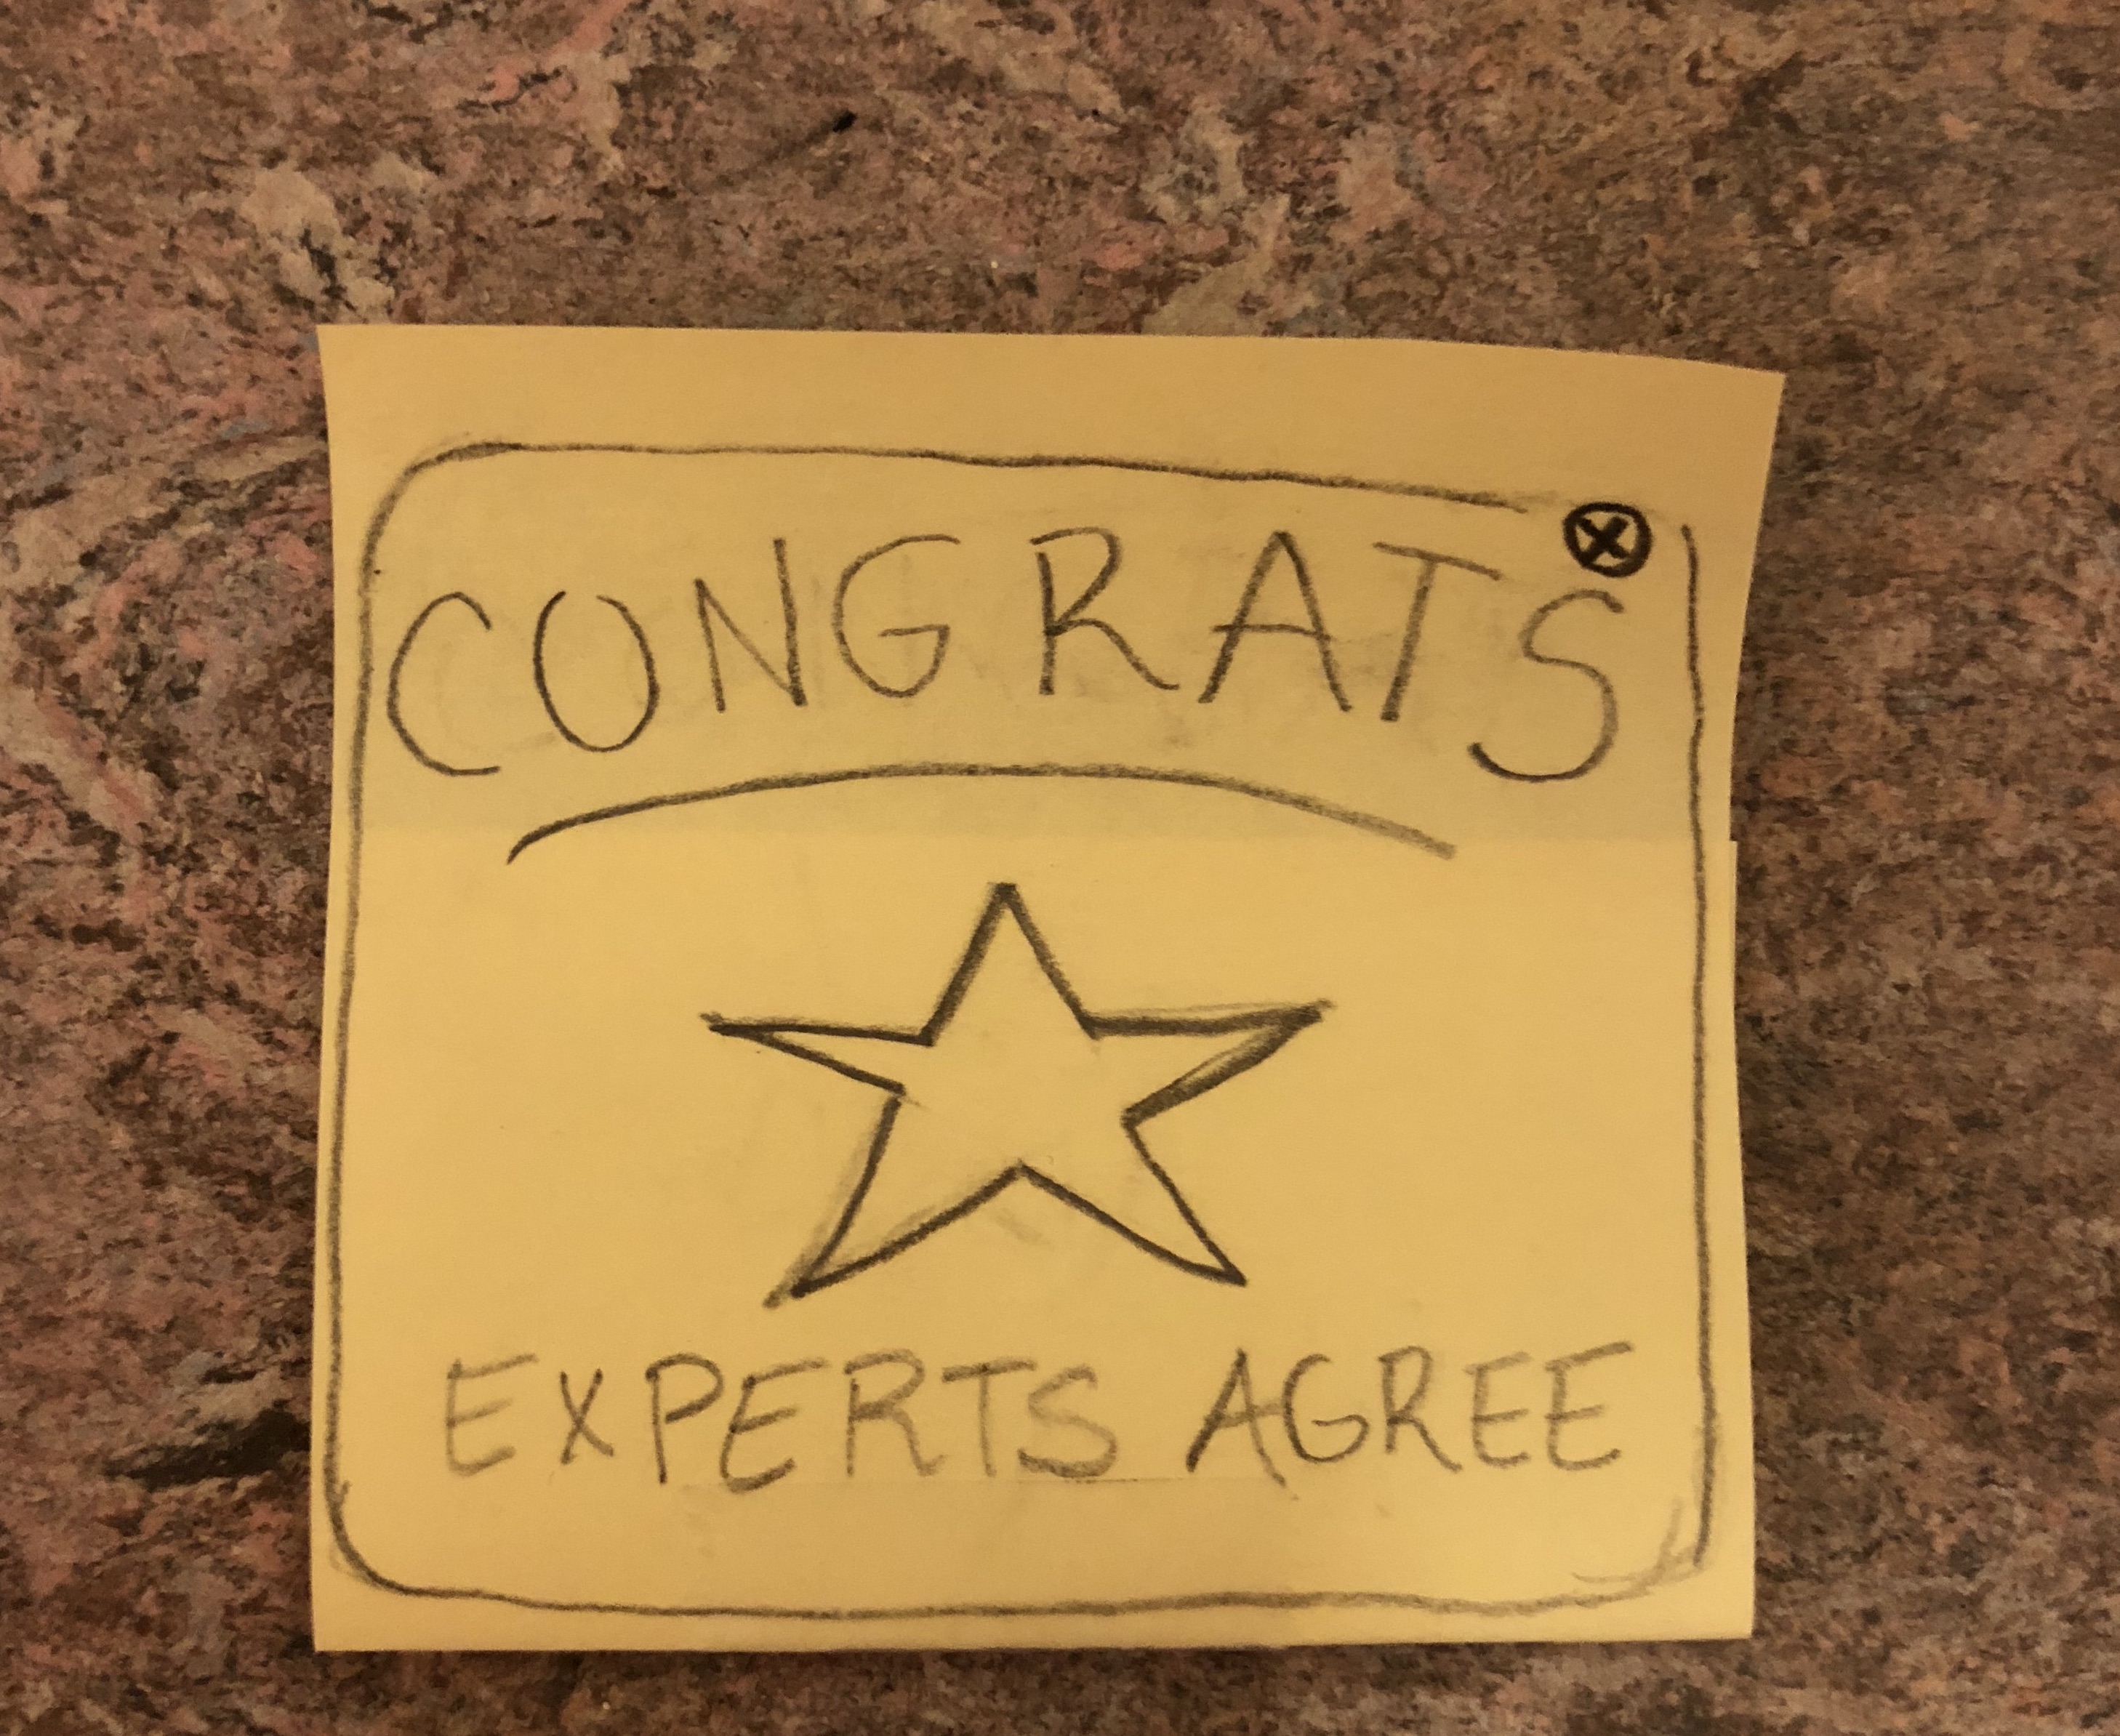 CONGRATS
EXPERTS AGREE